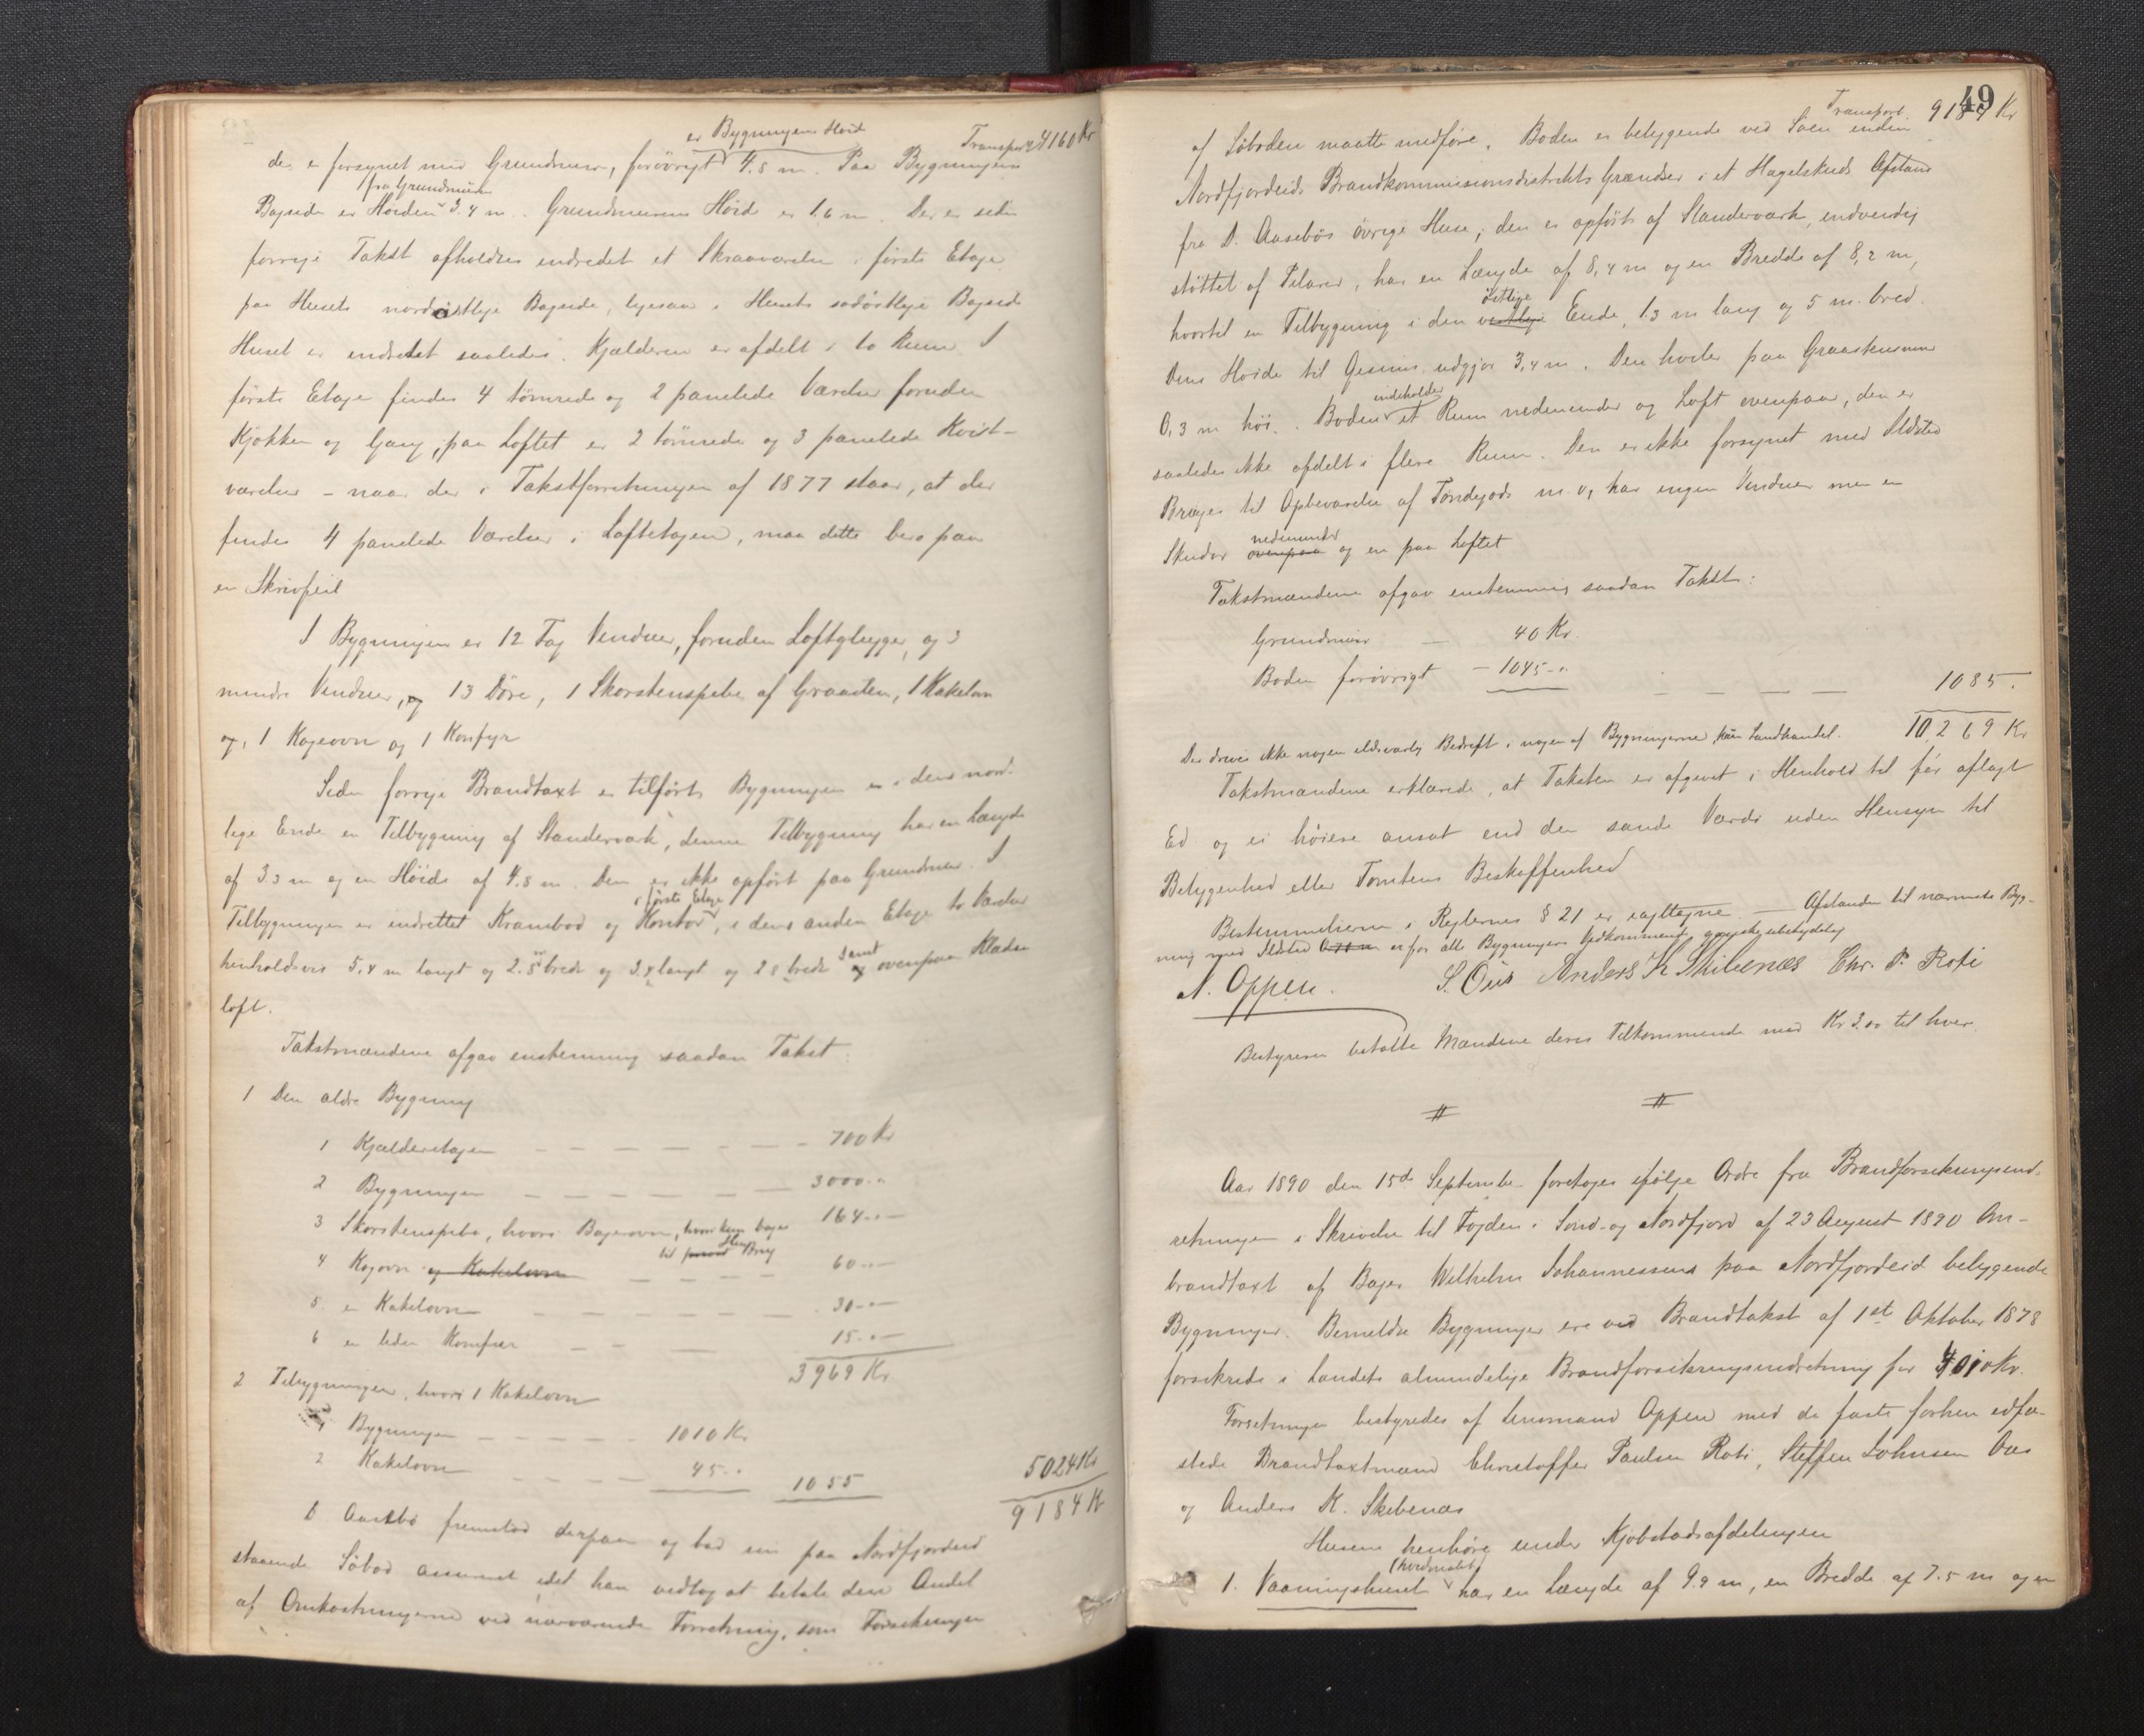 Transport 4160 Kr
der er forsynet med Grundmur, forövrigt er Bygningens Höide 4.8 m. Paa Bygningens
Bagside er Höiden fra Grundmuren 3.4 m. Grundmurens Höide er 1.6 m. Der er siden
forrige Takst afholdtes indredet et Skraaværelse i förste Etage
paa Husets nordöstlige Bagside, ligesaa i Husets sodöstlige Bagside
Huset er indredet saaledes. Kjælderen er afdelt i to Rum. I
förste Etage findes 4 tömrede og 2 panelede Værelser foruden
Kjökken og Gang, paa Loftet er 2 tömrede og 3 panelede Kvist-
værelser – naar der i Takstforretningen af 1877 staar, at der
findes 4 panelede Værelser i Loftetagen, maa dette bero paa
en Skrivfeil
I Bygningen er 12 Fag Vinduer, foruden Loftglugger, og 3
mindre Vinduer, og 13 Döre, 1 Skorstenspibe af Graasten, 1 Kakelovn
og, 1 Kogeovn og 1 Komfyr
Siden forrige Brandtaxt er tilfört Bygningen en i dens nord-
lige Ende en Tilbygning af Standerværk, denne Tilbygning har en Længde
af 3.3 m og en Höide af 4.8 m. Den er ikke opfört paa Grundmur. I
Tilbygningen er indrettet Krambod og Kontor i förste Etage, i dens anden Etage to Værelser
henholdsvis 5,4 m langt og 2.8 m bredt og 3.8 langt og 2 8 bredt samt og ovenpaa Klæde
loft.
Takstmændene afgav enstemmig saadan Takst:
1 Den ældre Bygning
1 Kjælderetagen — 700 Kr
2 Bygningen — 3000 -"
3 Skorstenspibe, hvori Bagerovn, hvori kun bages til privat HusBrug 164 -"-
4 Kogovn og Kakelovn — 60 -"-
5 en Kakelovn — 30 -"-
6 en liden Komfur — 15 -"-
3969 Kr.
2 Tilbygningen, hvori 1 Kakelovn
1 Bygningen — 1010 Kr
2 Kakelovn — 45 -" 1055
5024 Kr
9184 Kr
D Aasebö fremstod derpaa og bad sin paa Nordfjordeid
staaende Söbod assureret idet han vedtog at betale den Andel
af Omkostningerne ved nærværende Forretning, som Forsikringen
49
Transport 9184 Kr
af Söboden maatte medföre. Boden er beliggende ved Söen inden
Nordfjordeids Brandkommissionsdistrikts Grændser i et Hagelskuds Afstand
fra D. Aasebös övrige Huse; den er opfört af Standerværk, indvendig
stöttet af Pilarer, har en Længde af 8,4 m og en Bredde af 8,2 m,
hvortil en Tilbygning i den vestlige östlige Ende, 1.3 m lang og 5 m. bred.
Dens Höide til Gesims udgjör 3,4 m. Den hviler paa Graastensmur
0,3 m höi. Boden indeholder et Rum nedenunder og Loft ovenpaa, den er
saaledes ikke afdelt i flere Rum. Den er ikke forsynet med Ildsted
Bruges til Opbevarelse af Töndegods m. v, har ingen Vinduer men en
Skudör ovenpaa nedenunder og en paa Loftet
Takstmændene afgav enstemmig saadan Takst:
Grundmur — 40 Kr.
Boden forövrigt — 1045 -" — 1085.
Der drives ikke nogen ildsvarlig Bedrift i nogen af Bygningerne, kun Landhandel. 10,269 Kr
Takstmændene erklærede, at Taksten er afgivet i Henhold til för aflagt
Ed og ei höiere ansat end den sande Værdi uden Hensyn til
Beliggenhed eller Tomtens Beskaffenhed
Bestemmelserne i Reglernes § 21 er iagttagne. — Afstanden til nærmeste Byg-
ning med Ildsted er for alle Bygningers Vedkommende ganske ubetydelig
A. Oppen. S. Öus Anders K Skibenæs Chr. P. Roti
Bestyreren betalte Mændene deres Tilkommende med Kr 3.00 til hver.
Aar 1890 den 15de September foretoges ifölge Ordre fra Brandforsikringsind-
retningen i Skrivelse til Fogden i Sönd- og Nordfjord af 23 August 1890 Om-
brandtaxt af Bager Wilhelm Johannessens paa Nordfjordeid beliggende
Bygninger. Bemeldte Bygninger ere ved Brandtakst af 1st Oktober 1878
forsikrede i Landets almindelige Brandforsikringsindretning for 4010 Kr.
Forretningen bestyredes af Lensmand Oppen med de faste forhen edfæ-
stede Brandtaxtmænd Christoffer Paulsen Roti, Steffen Johnsen Ous
og Anders K. Skibenæs
Husene henhöre under Kjöbstadsafdelingen
1. Vaaningshuset (hvidmalet) har en Længde af 9.9 m, en Bredde af 7.5 m og en